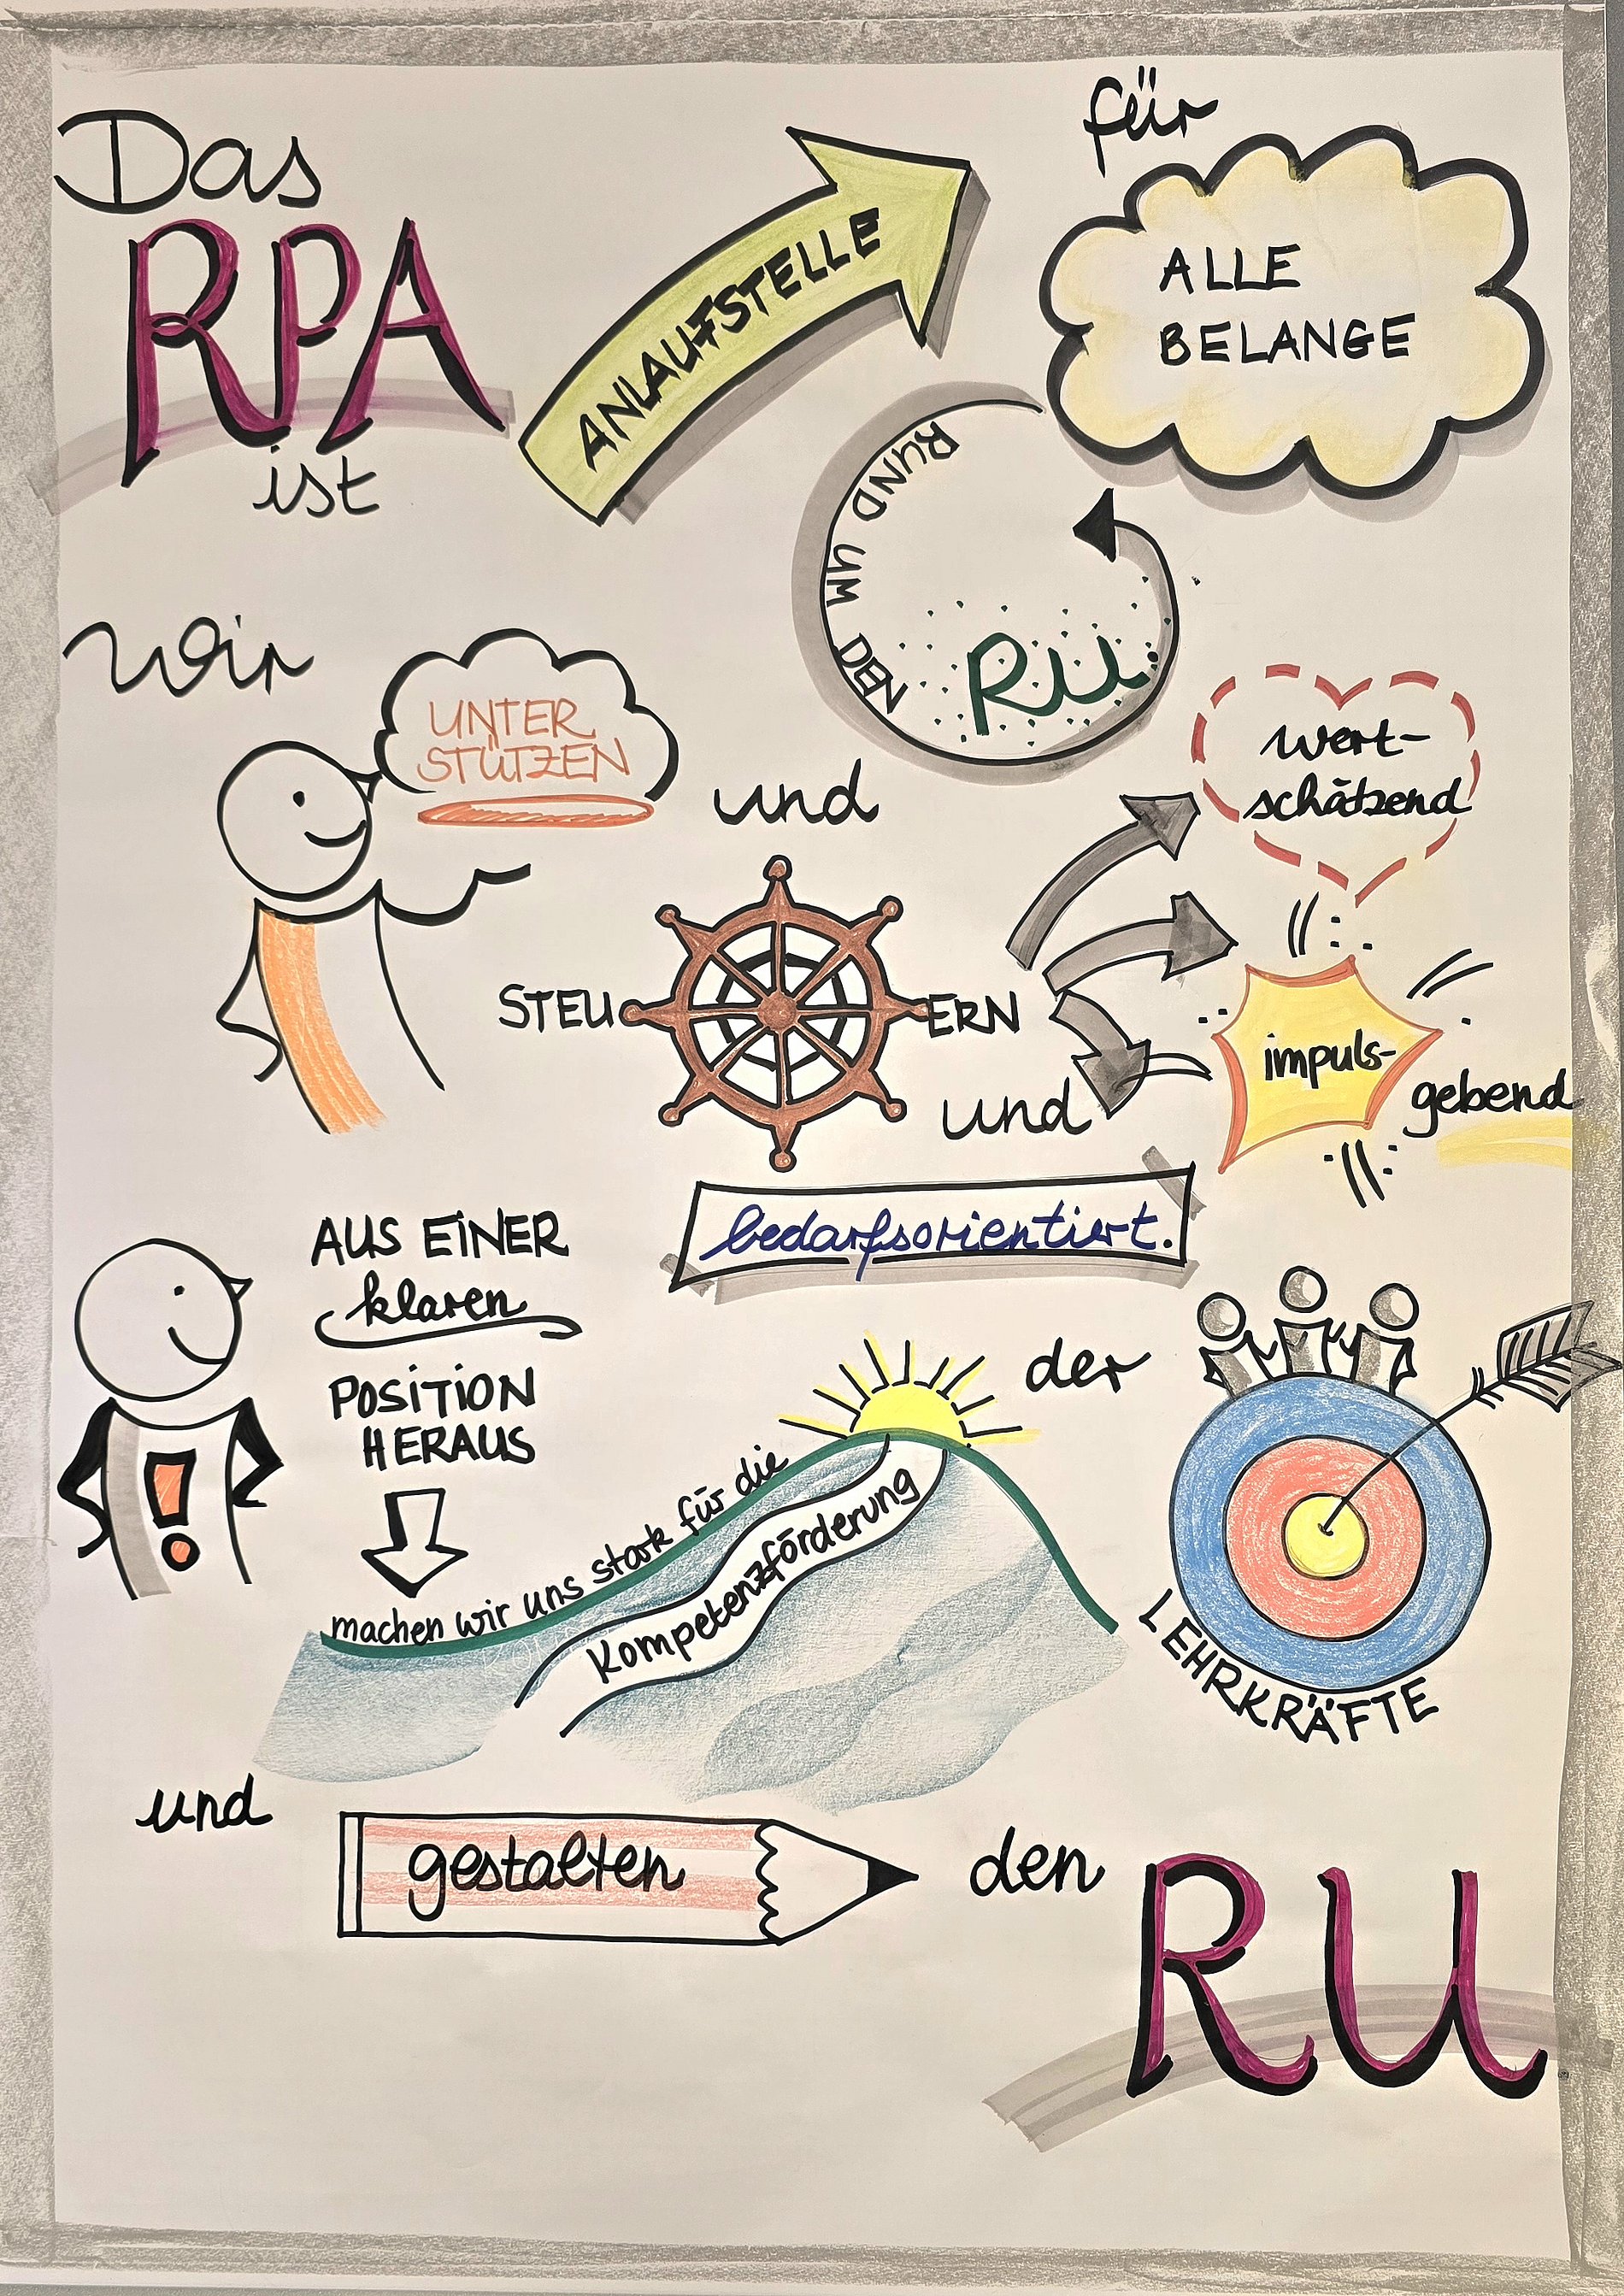 Das
RPA
ist
ANLAUFSTELLE
für
ALLE
BELANGE
RUND UM DEN
RU.
wir
UNTER
STÜTZEN
und
STEU ERN
wert-
schätzend
impuls-
gebend
und
bedarfsorientiert.
AUS EINER
klaren
POSITION
HERAUS
machen wir uns stark für die
Kompetenzförderung
der
LEHRKRÄFTE
und
gestalten
den
RU